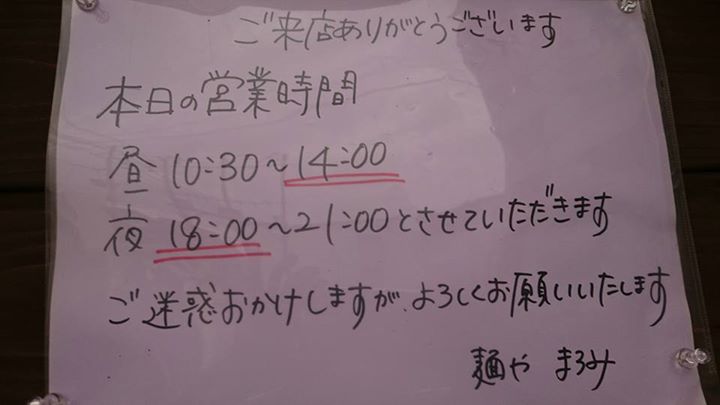 ご来店ありがとうございます
本日の営業時間
昼 10:30～14:00
夜 18:00～21:00とさせていただきます
ご迷惑おかけしますが、よろしくお願いいたします
麺や まろみ